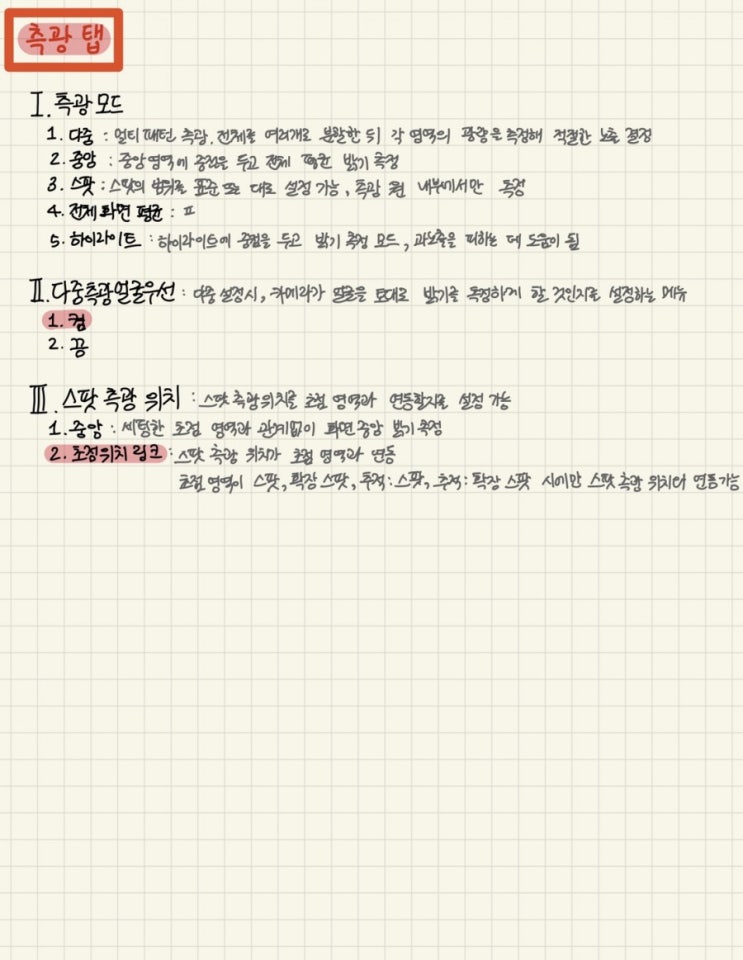 측광 탭
I. 측광 모드
1. 다중 : 멀티 패턴 측광. 전체를 여러개로 분할한 뒤 각 영역의 광량을 측정해 적절한 노출 결정
2. 중앙 : 중앙영역에 중점을 두고 전체 평균 밝기 측정
3. 스팟 : 스팟의 범위를 표준 또는 대로 설정 가능, 측광 원 내부에서만 측정
4. 전체 화면 평균 : ㅍ
5. 하이라이트 : 하이라이트에 중점을 두고 밝기 측정 모드, 과노출을 피하는 데 도움이 됨
II. 다중측광얼굴우선 : 다중 설정시, 카메라가 얼굴을 토대로 밝기를 측정하게 할 것인지를 설정하는 메뉴
1. 켬
2. 끔
III. 스팟 측광 위치 : 스팟 측광위치를 초점 영역과 연동할지를 설정 가능
1. 중앙 : 세팅한 초점 영역과 관계없이 화면 중앙 밝기 측정
2. 초점위치 링크 : 스팟 측광 위치가 초점 영역과 연동
초점 영역이 스팟, 확장 스팟, 추적: 스팟, 추적: 확장 스팟 시에만 스팟 측광 위치더 연동가능